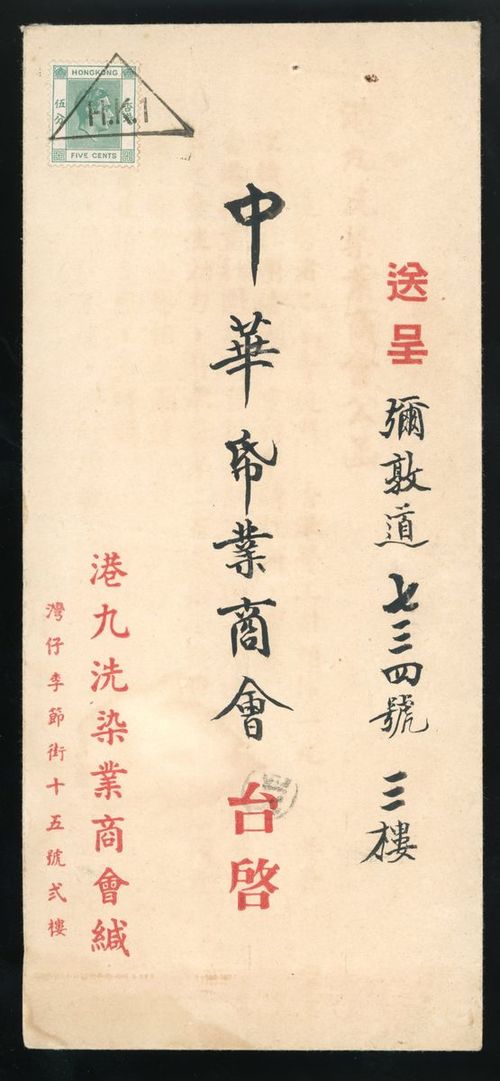 HONGKONG
伍分
FIVE CENTS
H.K.1
送呈 彌敦道七三四號三樓
中華帋業商會 台啓
港九洗染業商會緘
灣仔李節街十五號弍樓